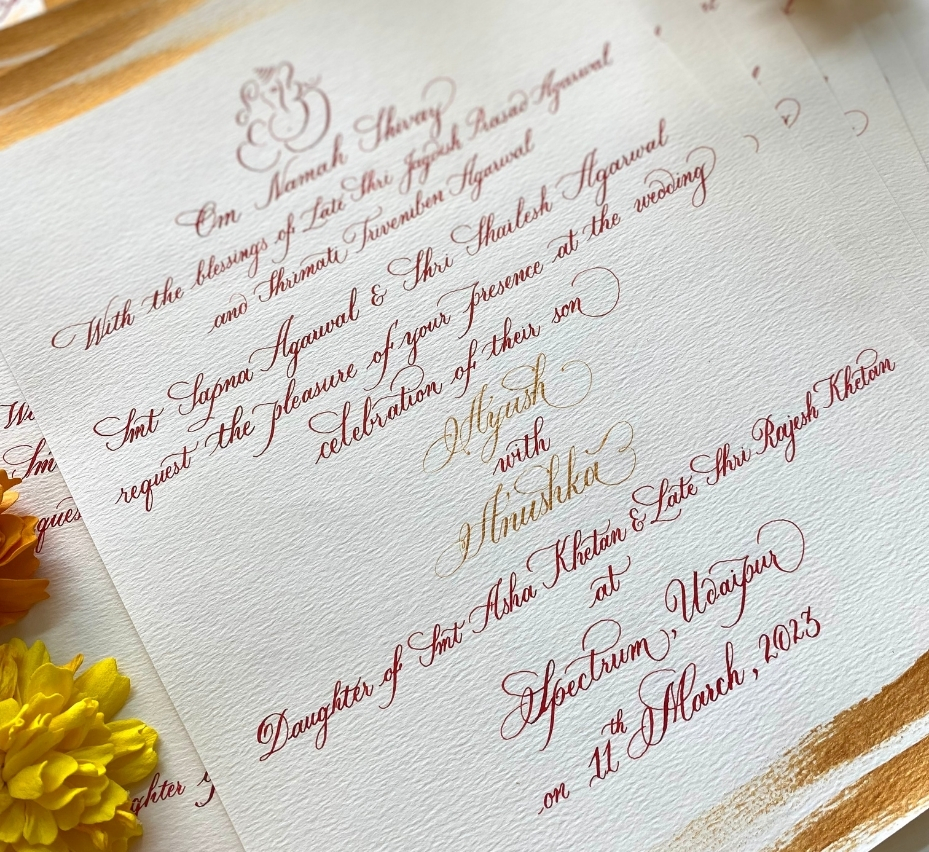 Om Namah Shivay
With the blessings of Late Shri Jagdish Prasad Agarwal
and Shrimati Triveniben Agarwal
Smt Sapna Agarwal & Shri Shailesh Agarwal
request the pleasure of your presence at the wedding
celebration of their son
Ayush
with
Anushka
Daughter of Smt Asha Khetan & Late Shri Rajesh Khetan
at
Spectrum, Udaipur
on 11th March, 2023